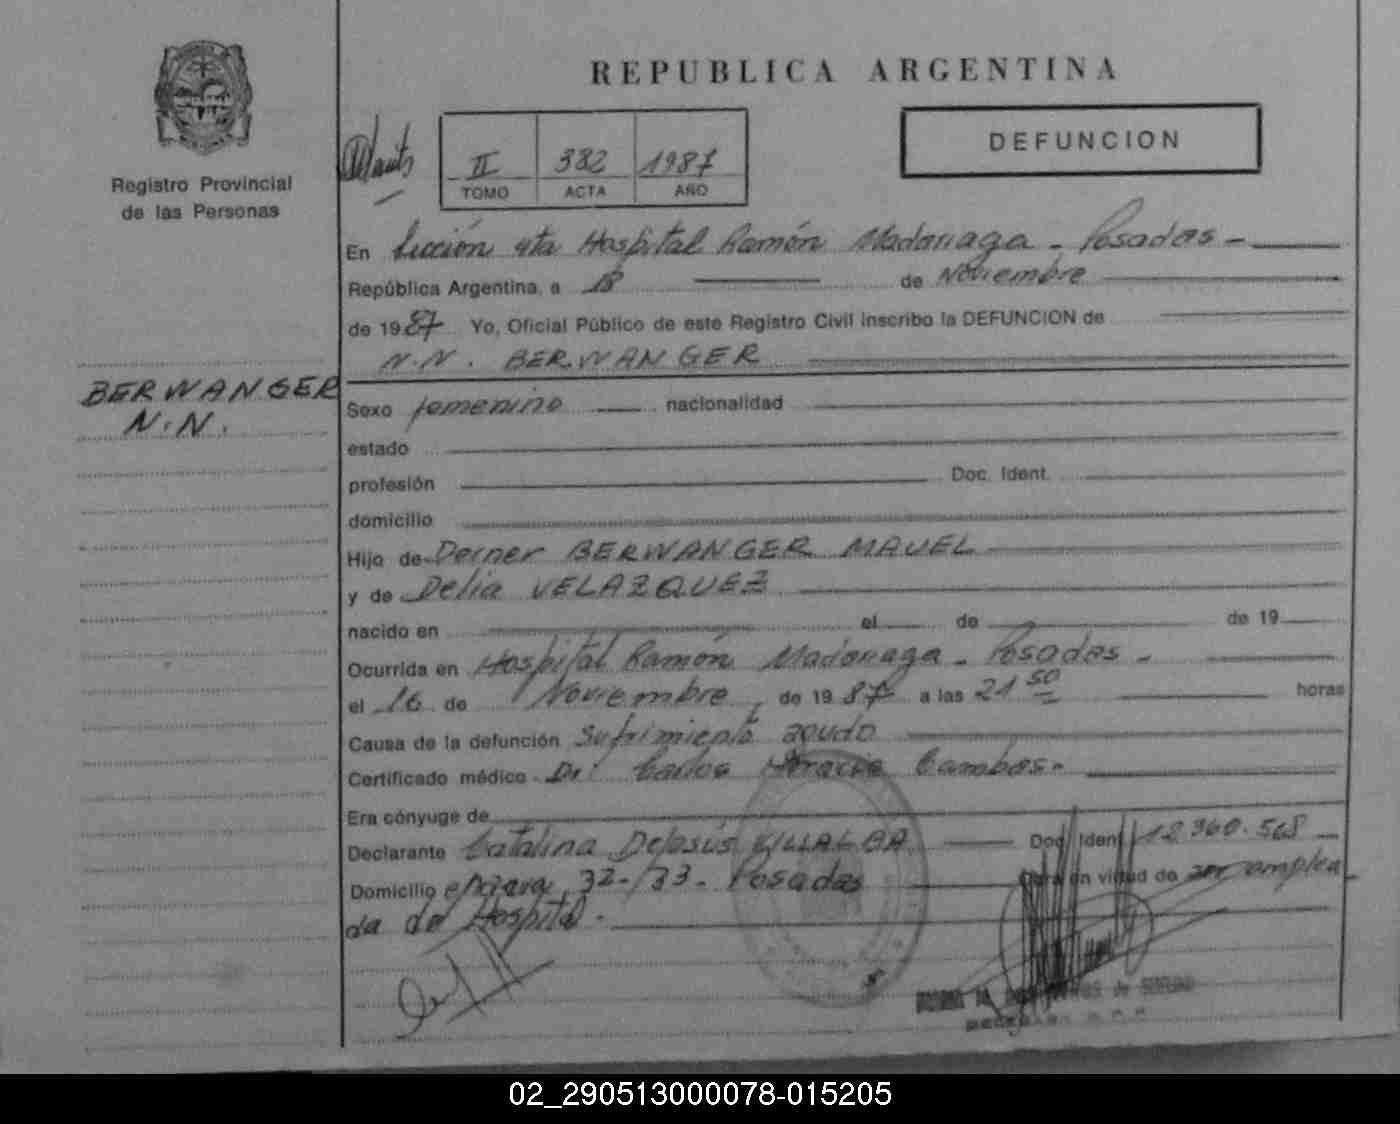 REPUBLICA ARGENTINA
DEFUNCION
Registro Provincial
de las Personas
II 382 1987
TOMO ACTA AÑO
En Sección 4ta Hospital Ramón Madariaga - Posadas -
República Argentina, a 18 de Noviembre
de 1987 Yo, Oficial Público de este Registro Civil inscribo la DEFUNCION de
N.N. BERWANGER
BERWANGER
N.N.
Sexo femenino nacionalidad
estado
profesión Doc. Ident.
domicilio
Hijo de Derner BERWANGER MAUEL
y de Delia VELAZQUEZ
nacido en el de de 19
Ocurrida en Hospital Ramón Madariaga - Posadas -
el 16 de Noviembre, de 1987 a las 21 50 horas
Causa de la defunción Sufrimiento agudo
Certificado médico Dr: Carlos Horacio Cambas -
Era cónyuge de
Declarante Catalina DeJesús VILLALBA Doc. Ident. 12.960.568
Domicilio 32-/33 - Posadas en virtud de ser emplea
da de Hospital -
02_290513000078-015205